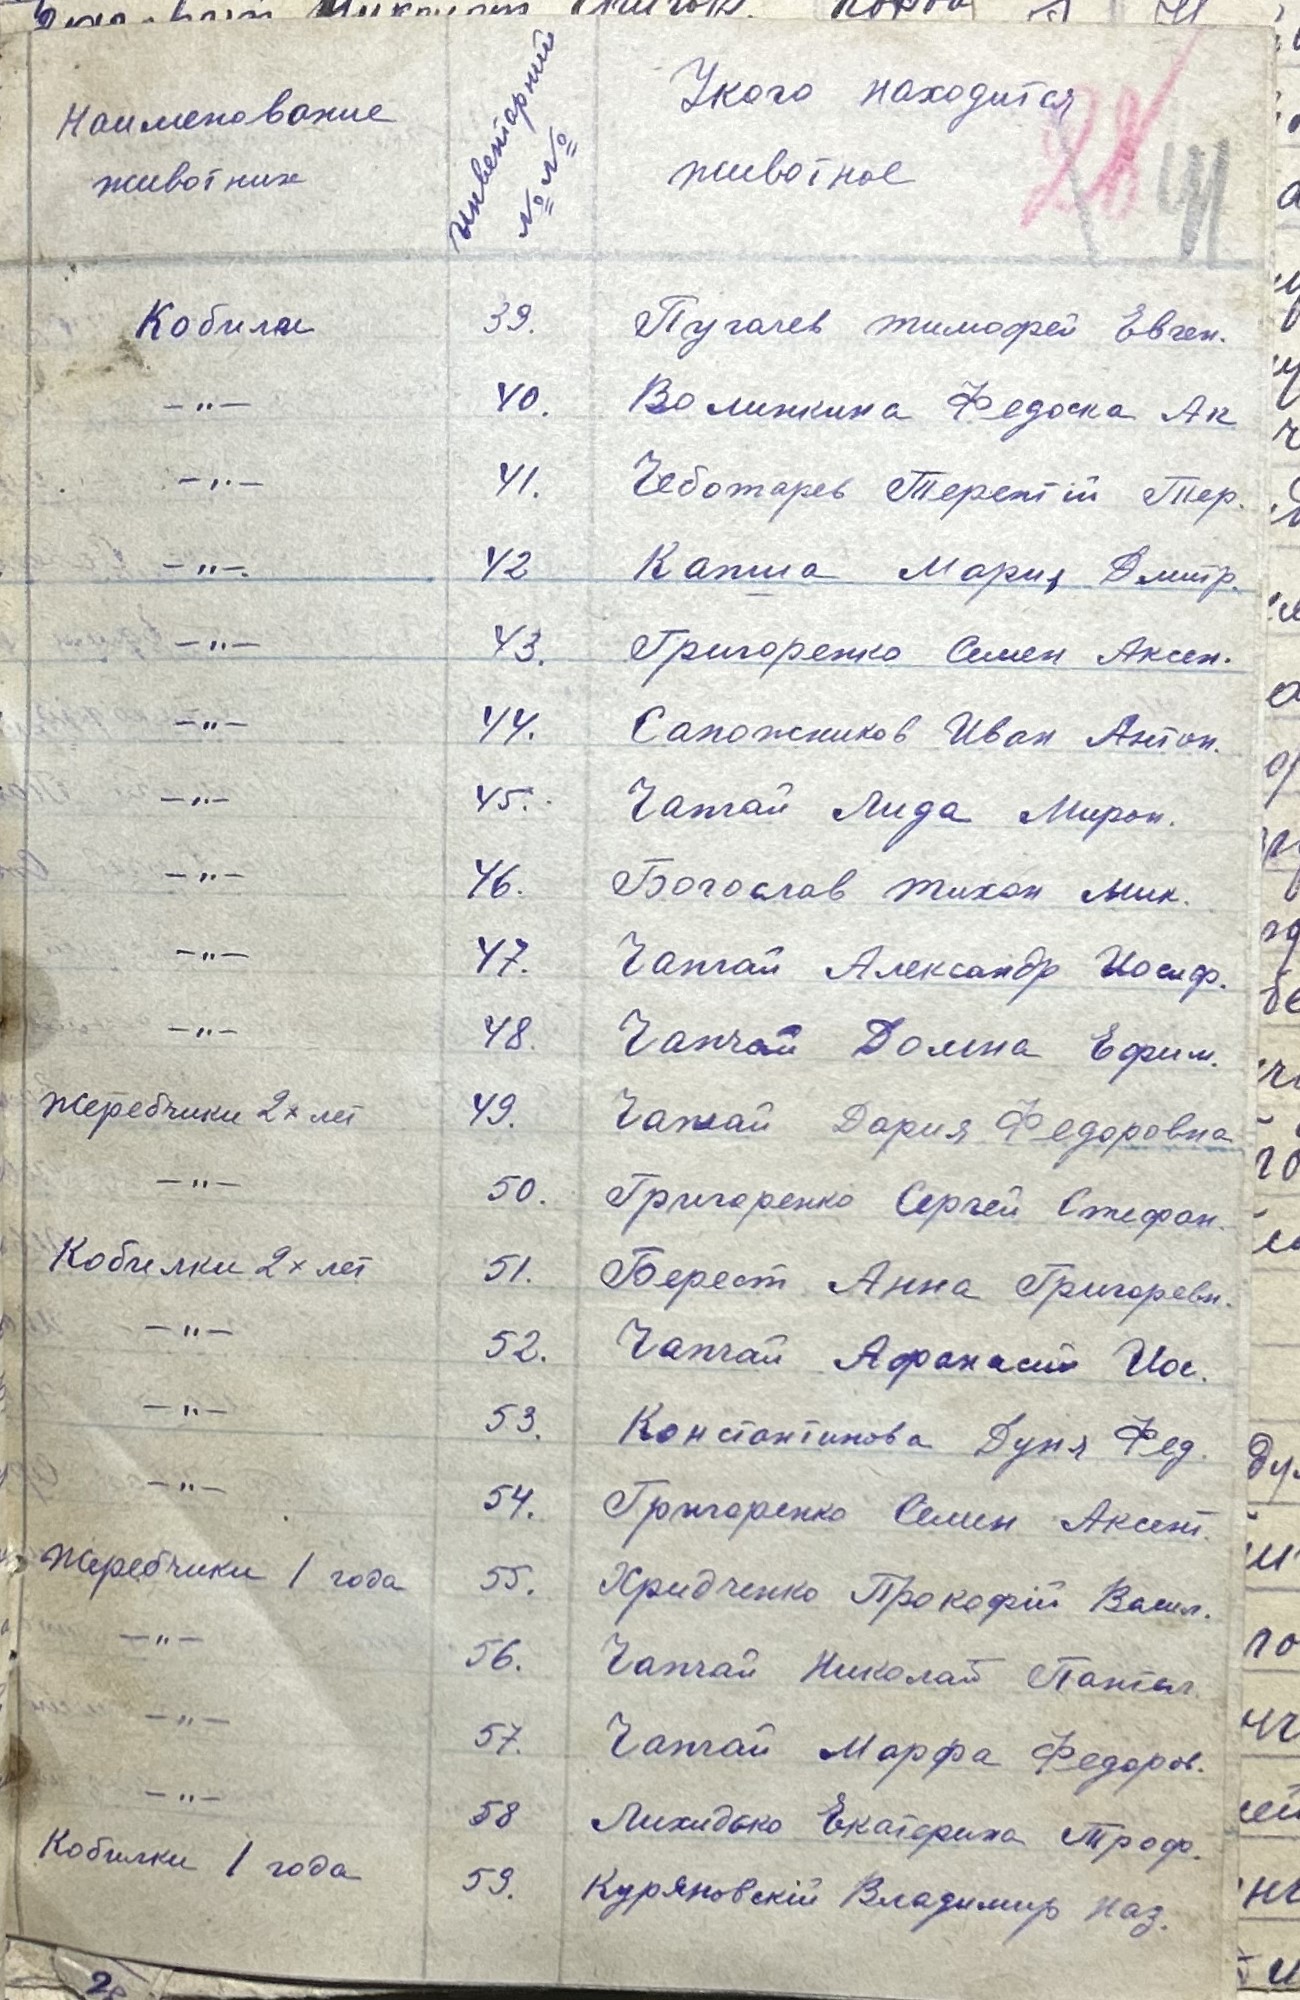 Наименование животних | инвентарний №№ | У кого находится животное
28 41
Кобили 39. Пугачев Тимофей Евген.
—"— 40. Волинкина Федоска Ак
—"— 41. Чеботарев Терентій Тер.
—"— 42 Капша Мария Дмитр.
—"— 43. Григоренко Семен Аксен.
—"— 44. Сапожников Иван Антон.
—"— 45. Чапчай Лида Мирон.
—"— 46. Богослав Тихон Мик.
—"— 47. Чапчай Александр Иосиф.
—"— 48. Чапчай Домна Ефим.
Жеребчики 2х лет 49. Чапчай Дария Федоровна
—"— 50. Григоренко Сергей Стефан.
Кобилки 2х лет 51. Берест Анна Григоревн.
—"— 52. Чапчай Афанасий Иос.
—"— 53. Константинова Дуня Фед.
—"— 54. Григоренко Семен Аксент.
Жеребчики 1 года 55. Хридченко Прокофій Васил.
—"— 56. Чапчай Николай Пантел.
—"— 57. Чапчай Марфа Федоров.
—"— 58 Лихидько Екатерина Троф.
Кобилки 1 года 59. Куряновскій Владимир Наз.